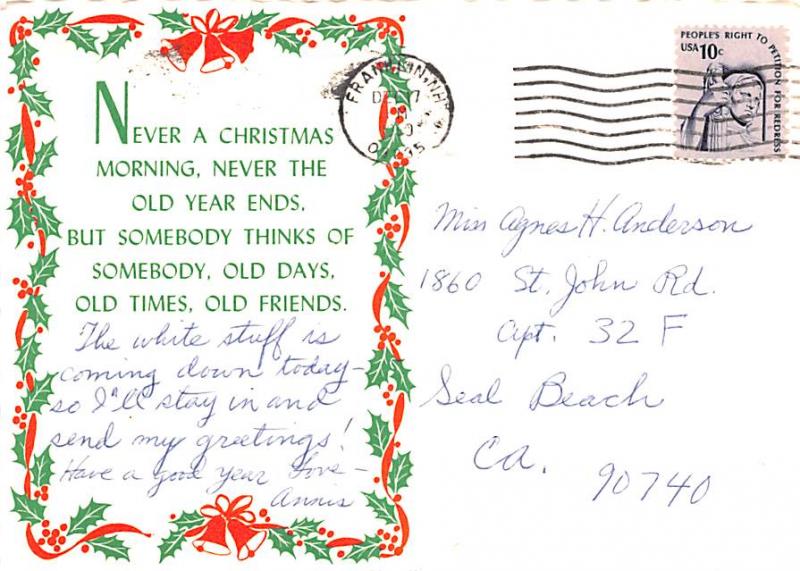 NEVER A CHRISTMAS
MORNING, NEVER THE
OLD YEAR ENDS,
BUT SOMEBODY THINKS OF
SOMEBODY, OLD DAYS,
OLD TIMES, OLD FRIENDS.
The white stuff is
coming down today –
so I'll stay in and
send my greetings!
Have a good year Love –
Annis
FRANKLIN, NH
DEC
PEOPLE'S RIGHT TO PETITION FOR REDRESS
USA 10c
Miss Agnes H. Anderson
1860 St. John Rd.
Apt. 32 F
Seal Beach
CA. 90740